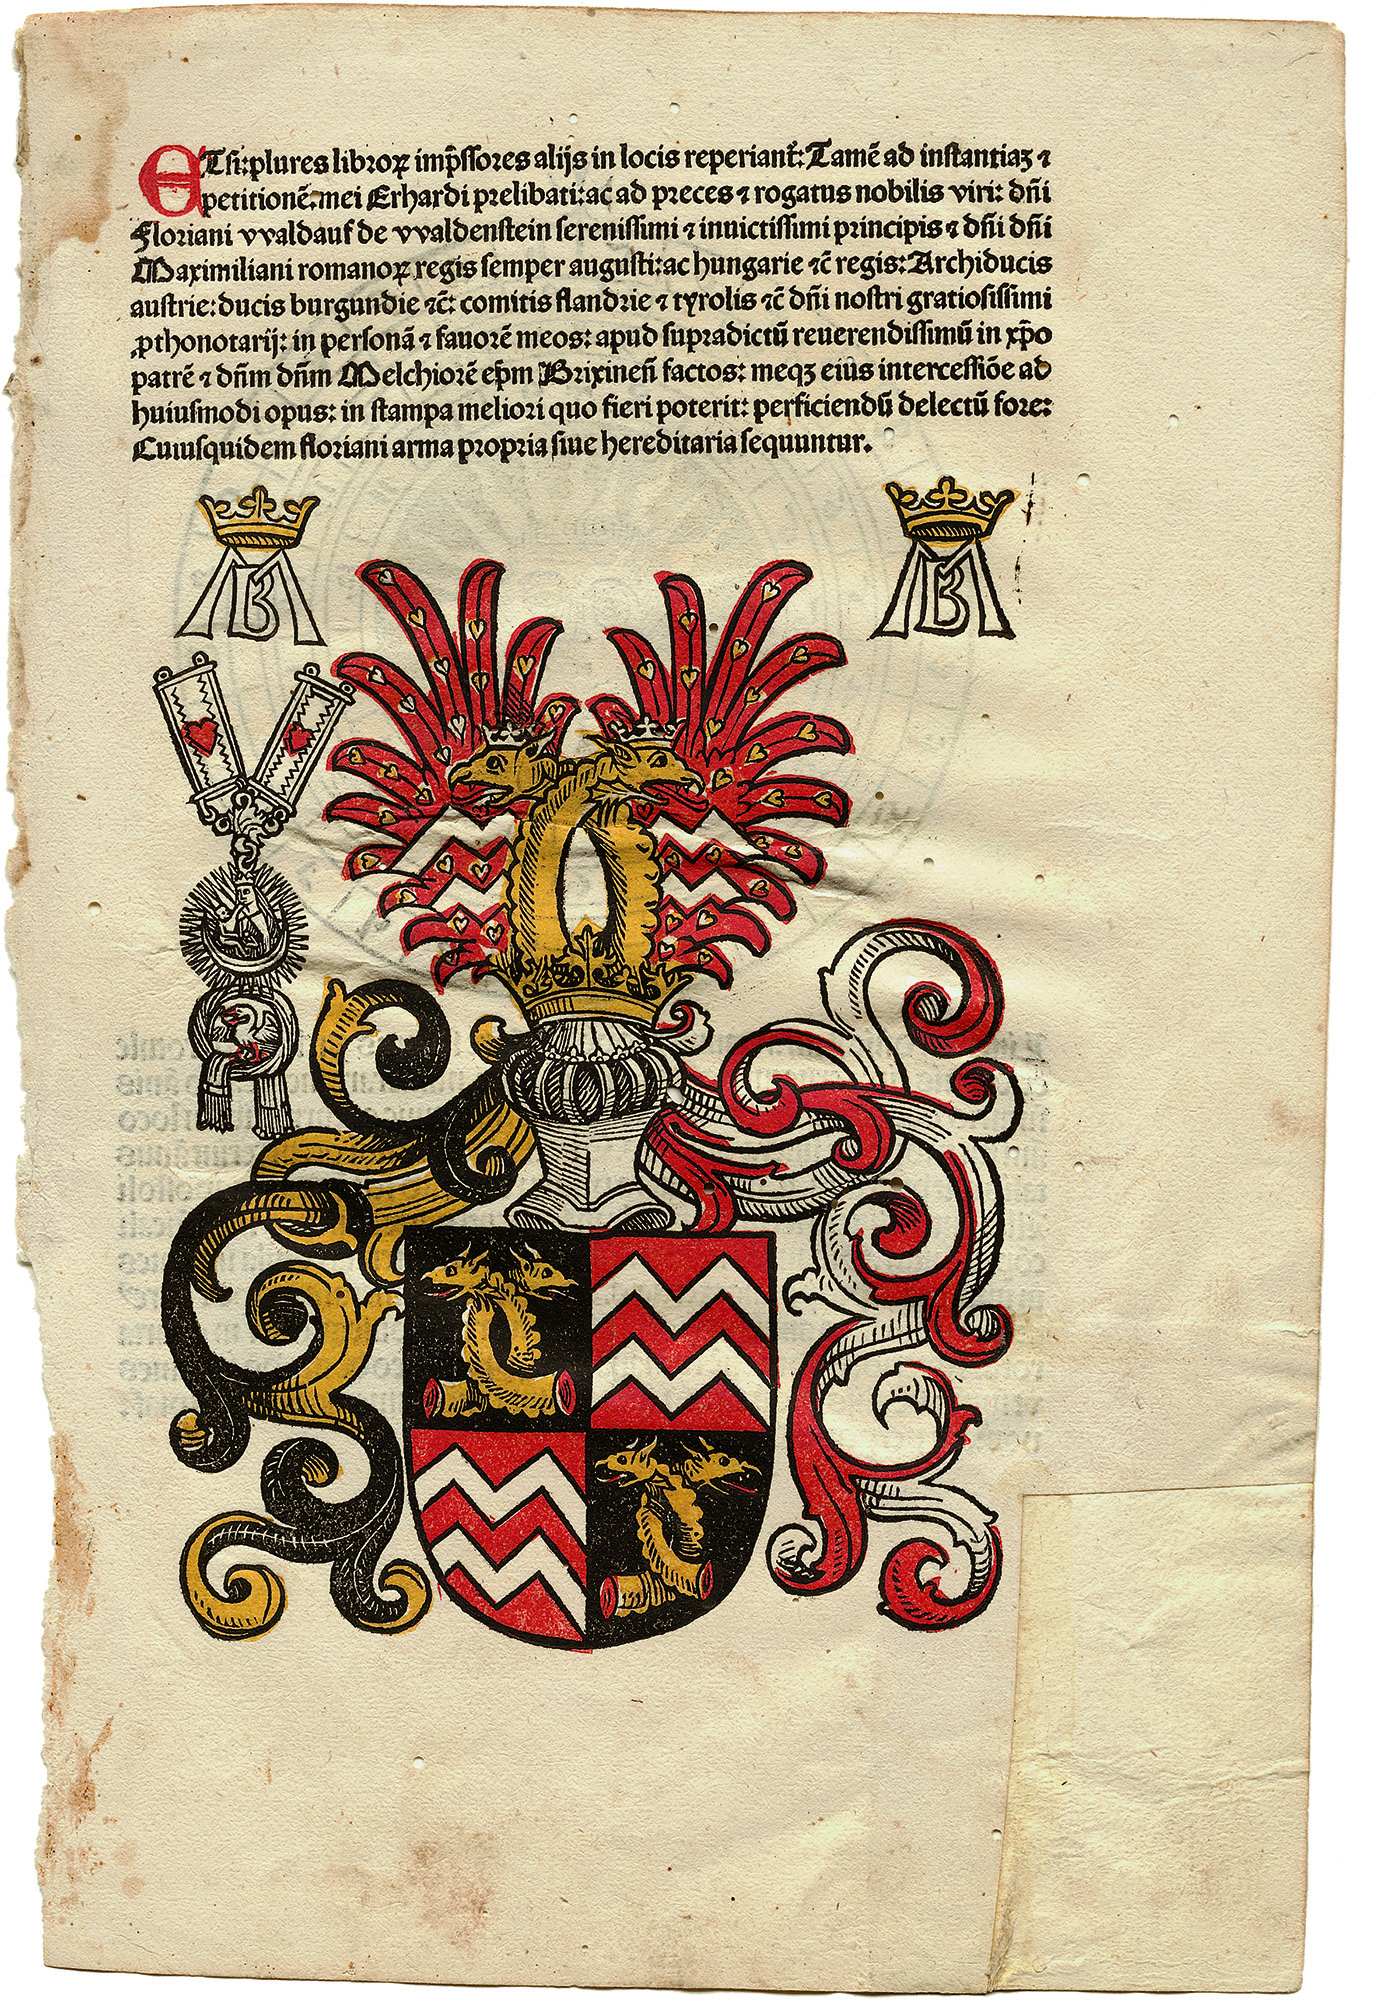 ETsi:plures libroꝝ imp̄ssores alijs in locis reperiant᷑: Tamē ad instantiaꝫ ⁊
petitionē:mei Erhardi prelibati:ac ad preces ⁊ rogatus nobilis viri: dn̄i
Floriani vvaldauf de vvaldenstein serenissimi ⁊ inuictissimi principis ⁊ dn̄i dn̄i
Maximiliani romanoꝝ regis semper augusti:ac hungarie ⁊c̄ regis: Archiducis
austrie: ducis burgundie ⁊c̄: comitis flandrie ⁊ tyrolis ⁊c̄ dn̄i nostri gratiosissimi
ꝓthonotarij: in personā ⁊ fauorē meos: apud supradictū reuerendissimū in xp̄o
patrē ⁊ dn̄m dn̄m Melchiorē ep̄m Brixinen̄ factos: meqꝫ eius intercessiōe ad
huiusmodi opus: in stampa meliori quo fieri poterit: perficiendū delectū fore:
Cuiusquidem floriani arma propria siue hereditaria sequuntur.